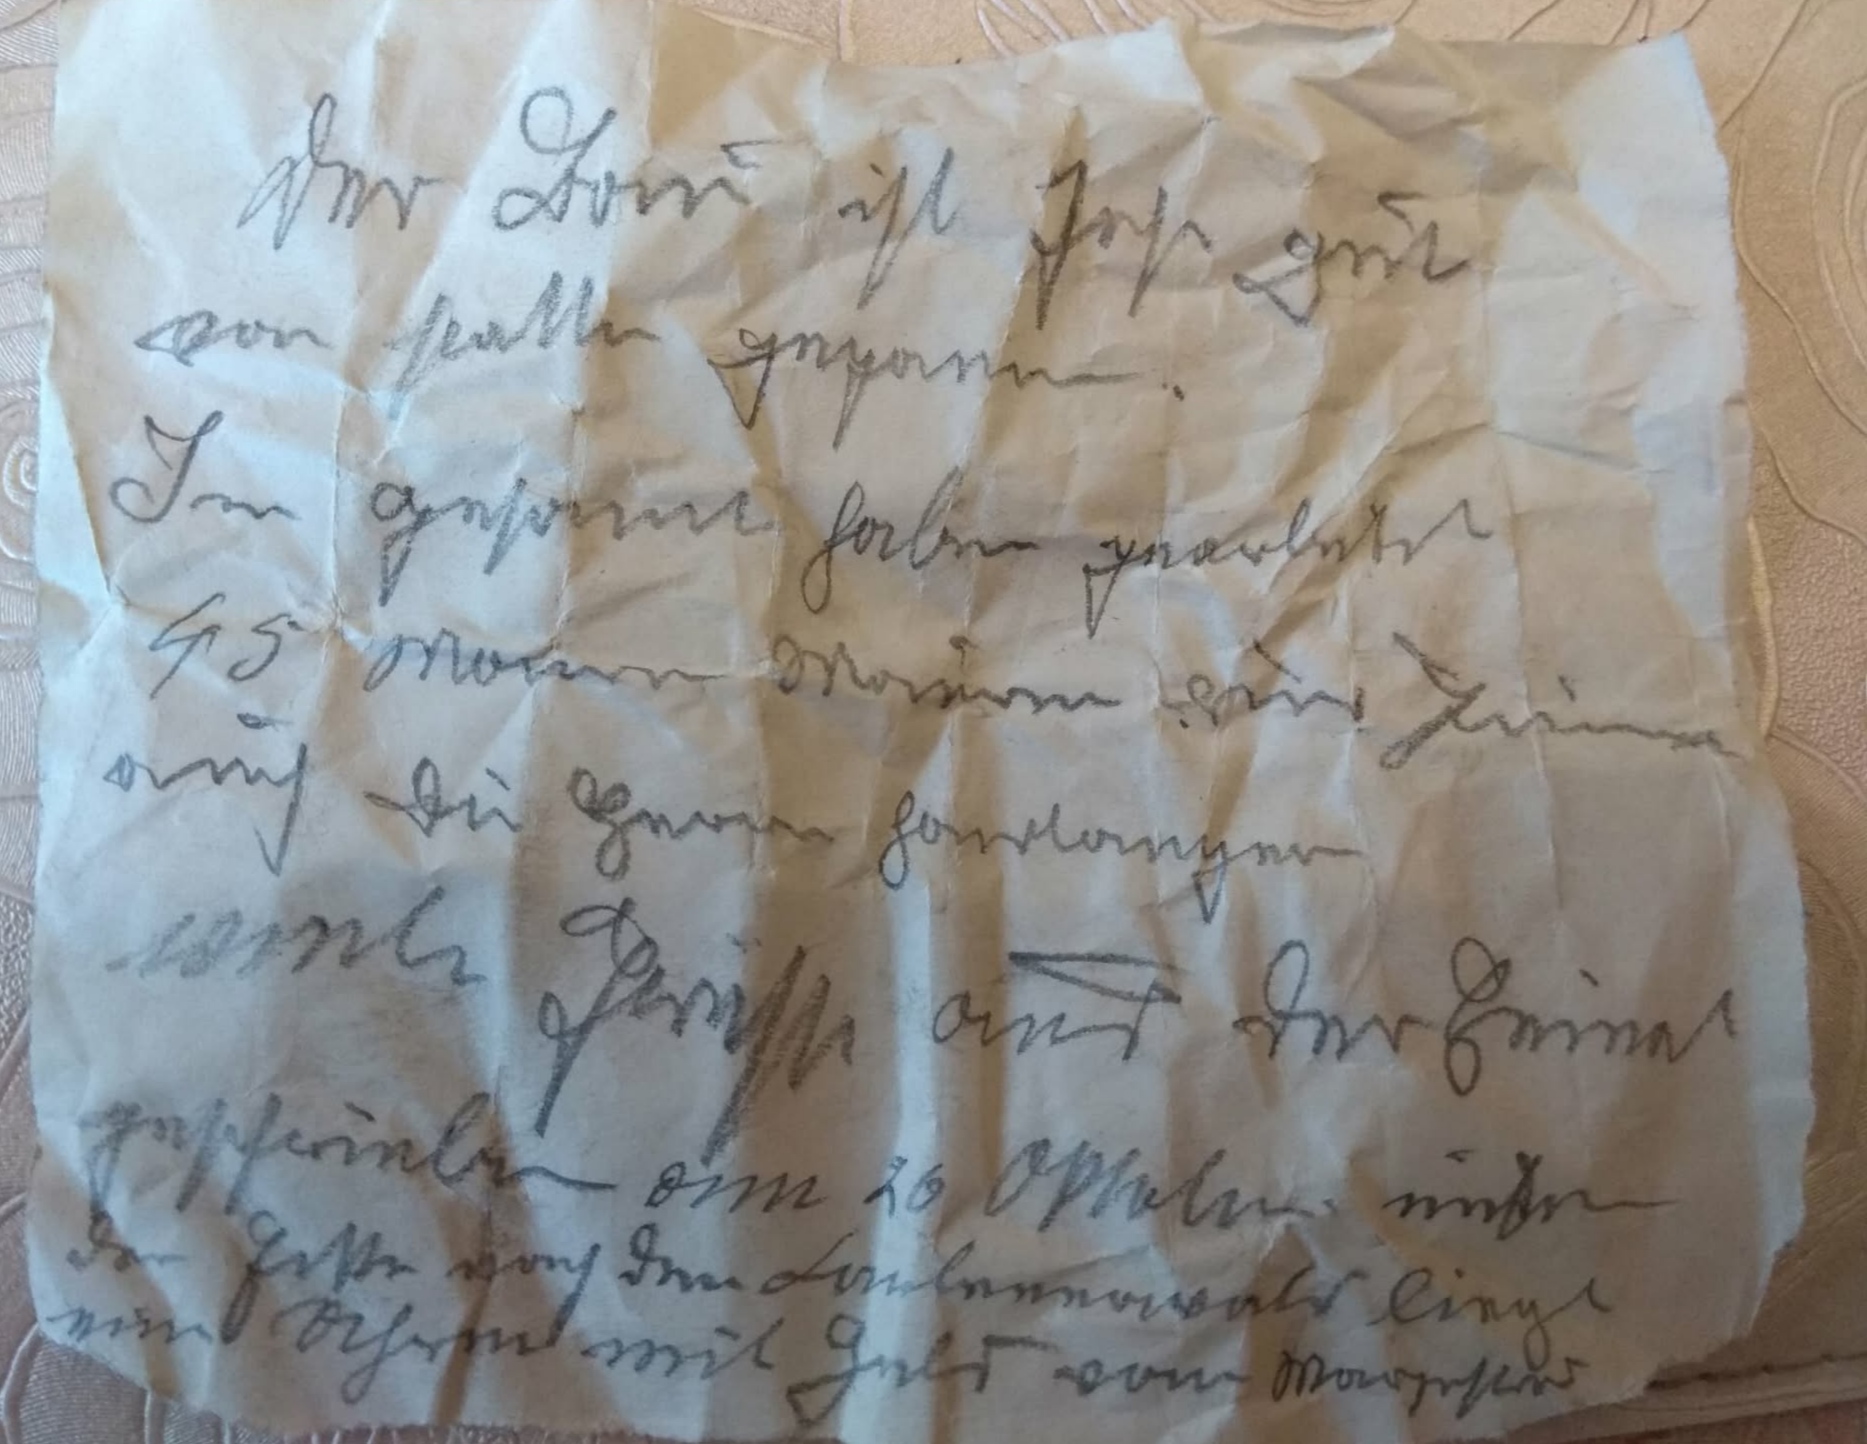 Der Bau ist sehr gut
von statten gegangen.
Im gesamt haben gearbeitet
45 Mann Maurer und Zimmer
auch die Herrn Handlanger
viele Grüsse aus der Heimat
geschrieben am 26 Oktober
der nach dem liegt
ein mit Geld vom